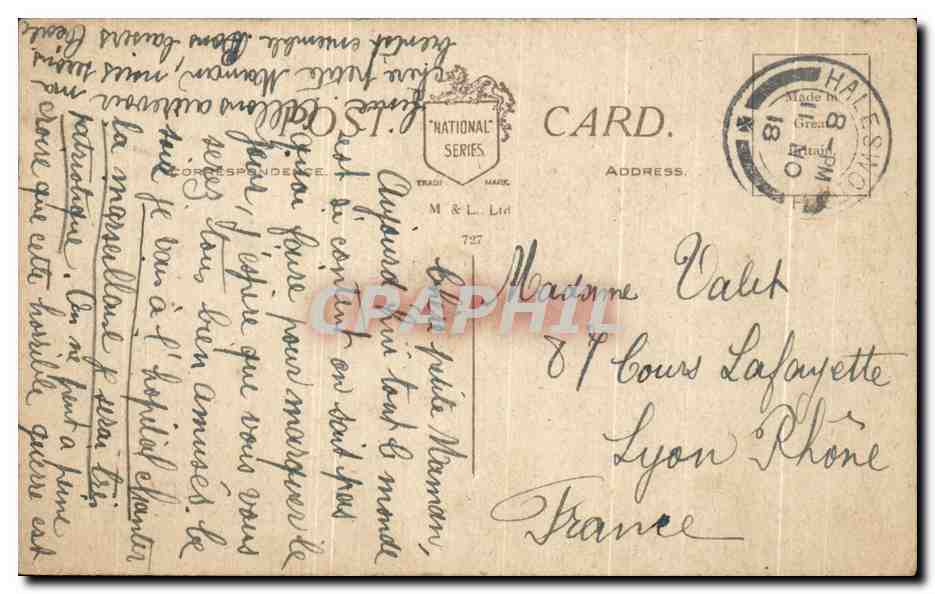 POST CARD.
"NATIONAL"
SERIES.
TRADE MARK.
CORRESPONDENCE.
ADDRESS.
M & L. Ltd
727
Made in
Great
Britain.
HALESWO
8 - PM
11 NO
18
CPRAPHIL
Madame Valet
87 Cours Lafayette
Lyon Rhône
France
Chère petite Maman,
Aujourd'hui tout le monde
est si content on sait pas
quoi faire pour marquer le
jour, j'espère que vous vous
serez tous bien amusés. Ce
soir je vais à l'hopital chanter
la marseillaise je serai très
patriotique. On ne peut a peine
croire que cette horrible guerre est
finie. Allons au revoir ma
chère petite Maman, nous serons
bientôt ensemble Bons baisers